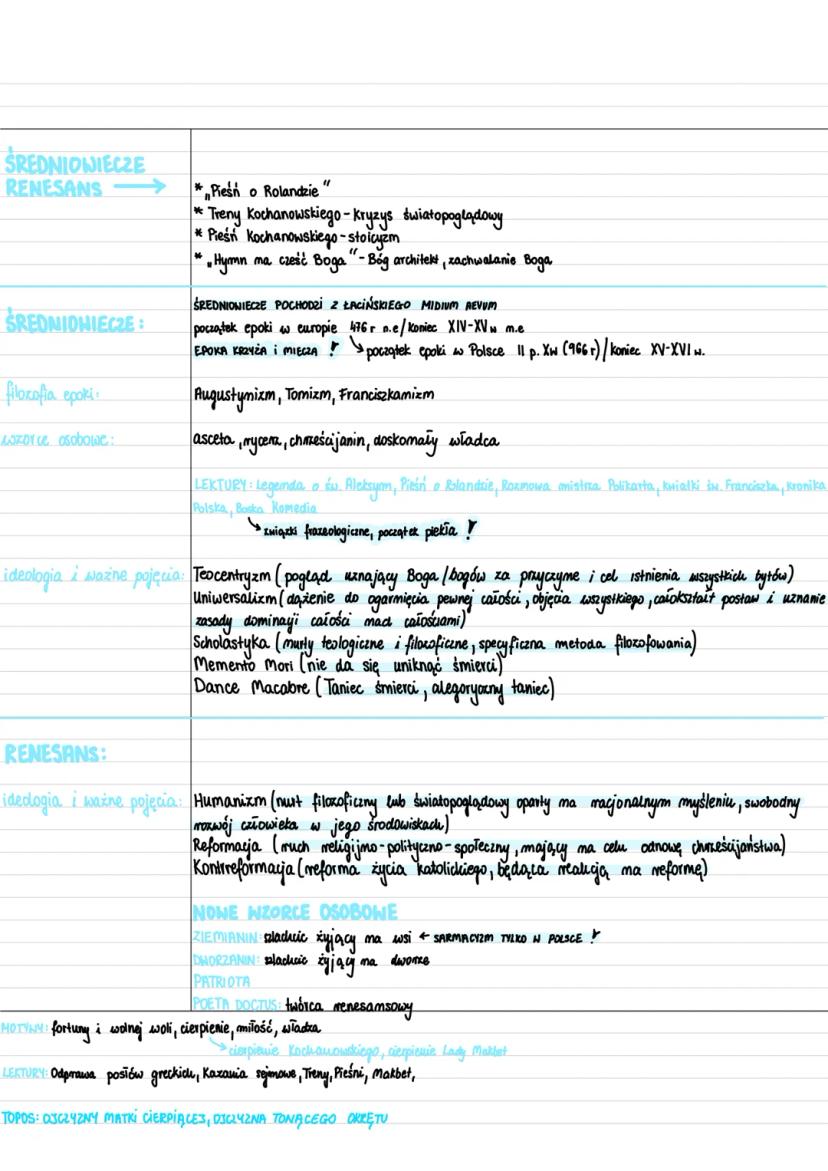 ŚREDNIOWIECZE
RENESANS →
* „Pieśń o Rolandzie"
* Treny Kochanowskiego - kryzys światopoglądowy
* Pieśń Kochanowskiego - stoicyzm
* „Hymn na cześć Boga" - Bóg architekt, zachwalanie Boga
ŚREDNIOWIECZE:
ŚREDNIOWIECZE POCHODZI Z ŁACIŃSKIEGO MIDIUM AEVUM
początek epoki w europie 476 r n.e / koniec XIV-XV w n.e
EPOKA KRZYŻA i MIECZA ! ↘ początek epoki w Polsce II p. Xw (966 r) / koniec XV-XVI w.
filozofia epoki:
Augustynizm, Tomizm, Franciszkanizm
wzorce osobowe:
asceta, rycerz, chrześcijanin, doskonały władca
LEKTURY: Legenda o św. Aleksym, Pieśń o Rolandzie, Rozmowa mistrza Polikarta, kwiatki św. Franciszka, kronika
Polska, Boska Komedia
↘ związki frazeologiczne, początek piekła !
ideologia i ważne pojęcia:
Teocentryzm ( pogląd uznający Boga / bogów za przyczynę i cel istnienia wszystkich bytów)
Uniwersalizm ( dążenie do ogarnięcia pewnej całości, objęcia wszystkiego, całokształt postaw i uznanie
zasady dominacji całości nad całościami)
Scholastyka ( nurty teologiczne i filozoficzne, specyficzna metoda filozofowania)
Memento Mori ( nie da się uniknąć śmierci)
Dance Macabre ( Taniec śmierci, alegoryczny taniec)
RENESANS:
ideologia i ważne pojęcia:
Humanizm ( nurt filozoficzny lub światopoglądowy oparty na racjonalnym myśleniu, swobodny
rozwój człowieka w jego środowiskach)
Reformacja ( ruch religijno-polityczno-społeczny, mający na celu odnowę chrześcijaństwa)
Kontrreformacja ( reforma życia katolickiego, będąca reakcją na reformę)
NOWE WZORCE OSOBOWE
ZIEMIANIN: szlachcic żyjący na wsi ← SARMACYZM TYLKO W POLSCE !
DWORZANIN: szlachcic żyjący na dworze
PATRIOTA
POETA DOCTUS: twórca renesansowy
MOTYWY: fortuny i wolnej woli, cierpienie, miłość, władza
↘ cierpienie Kochanowskiego, cierpienie Lady Makbet
LEKTURY: Odprawa posłów greckich, Kazania sejmowe, Treny, Pieśni, Makbet,
TOPOS: OJCZYZNY MATKI CIERPIĄCEJ, OJCZYZNA TONĄCEGO OKRĘTU